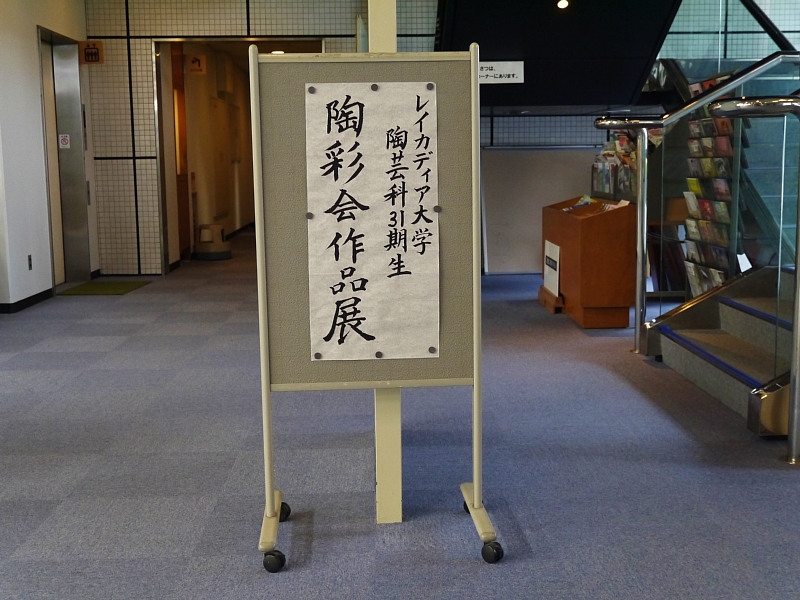 レイカディア大学
陶芸科31期生
陶彩会作品展
さつは、
ーナーにあります。